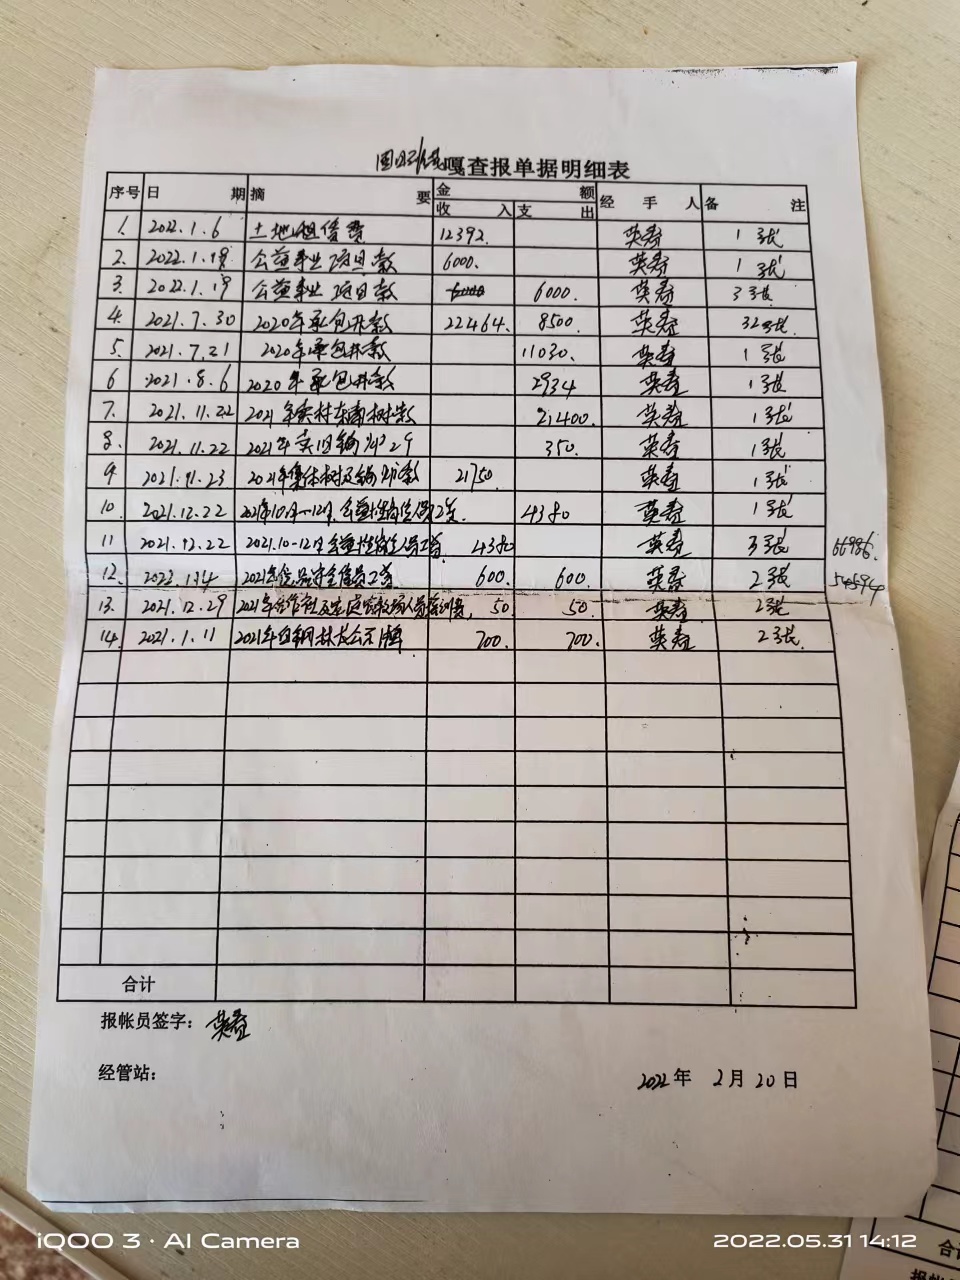 嘎查报单据明细表
序号 日期 摘要 金额 经手人 备注
收入 支出
1. 2022.1.6 土地租赁费 12392. 英寿 1张
2. 2022.1.19 公益事业项目款 6000. 英寿 1张
3. 2022.1.19 公益事业项目款 6000. 英寿 3张
4. 2021.7.30 2020年承包井款 22464. 8500. 英寿 32张.
5. 2021.7.21 2020年承包井款 11030. 英寿 1张
6 2021.8.6 2020年承包井款 2934 英寿 1张
7. 2021.11.22 2021年卖村东南树款 21400. 英寿 1张
8. 2021.11.22 2021年卖旧 350. 英寿 1张
9 2021.11.23 2021年集体树及 款 21750. 英寿 1张
10. 2021.12.22 2021年10月-12月公益性岗位人员工资. 4380 英寿 1张
11 2021.12.22 2021.10-12月公益性岗位人员工资. 4380 英寿 3张 66986.
12. 2022.1.4 2021年食品安全信息员工资 600. 600. 英寿 2张
13. 2021.12.29 2021年合作社及家庭牧场人员培训费, 50. 50. 英寿 2张
14. 2021.1.11 2021年 林长公示牌 700. 700. 英寿 2张.
合计
报帐员签字: 英寿
经管站: 2022年 2月 20日
合
报帐
iQOO 3 · AI Camera 2022.05.31 14:12